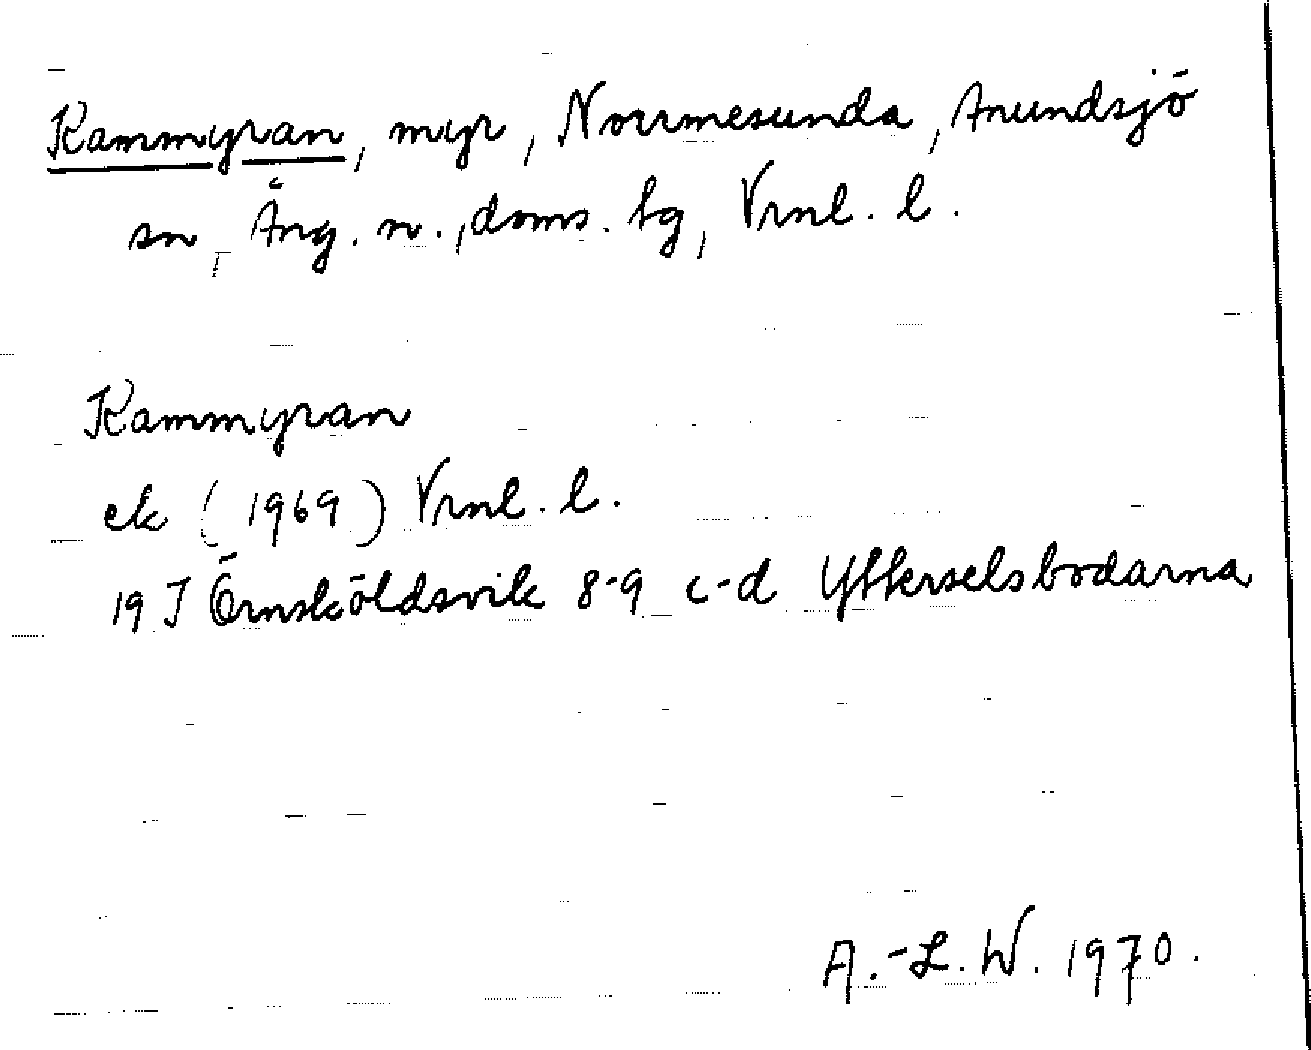 Kammyran, myr, Norrmesunda, Anundsjö
sn, Ång. n., doms. bg, Vrnl. l.
Kammyran
ek (1969) Vrnl. l.
19 J Örnsköldsvik 8-9 c-d Ytterselsbodarna
A.-L. W. 1970.